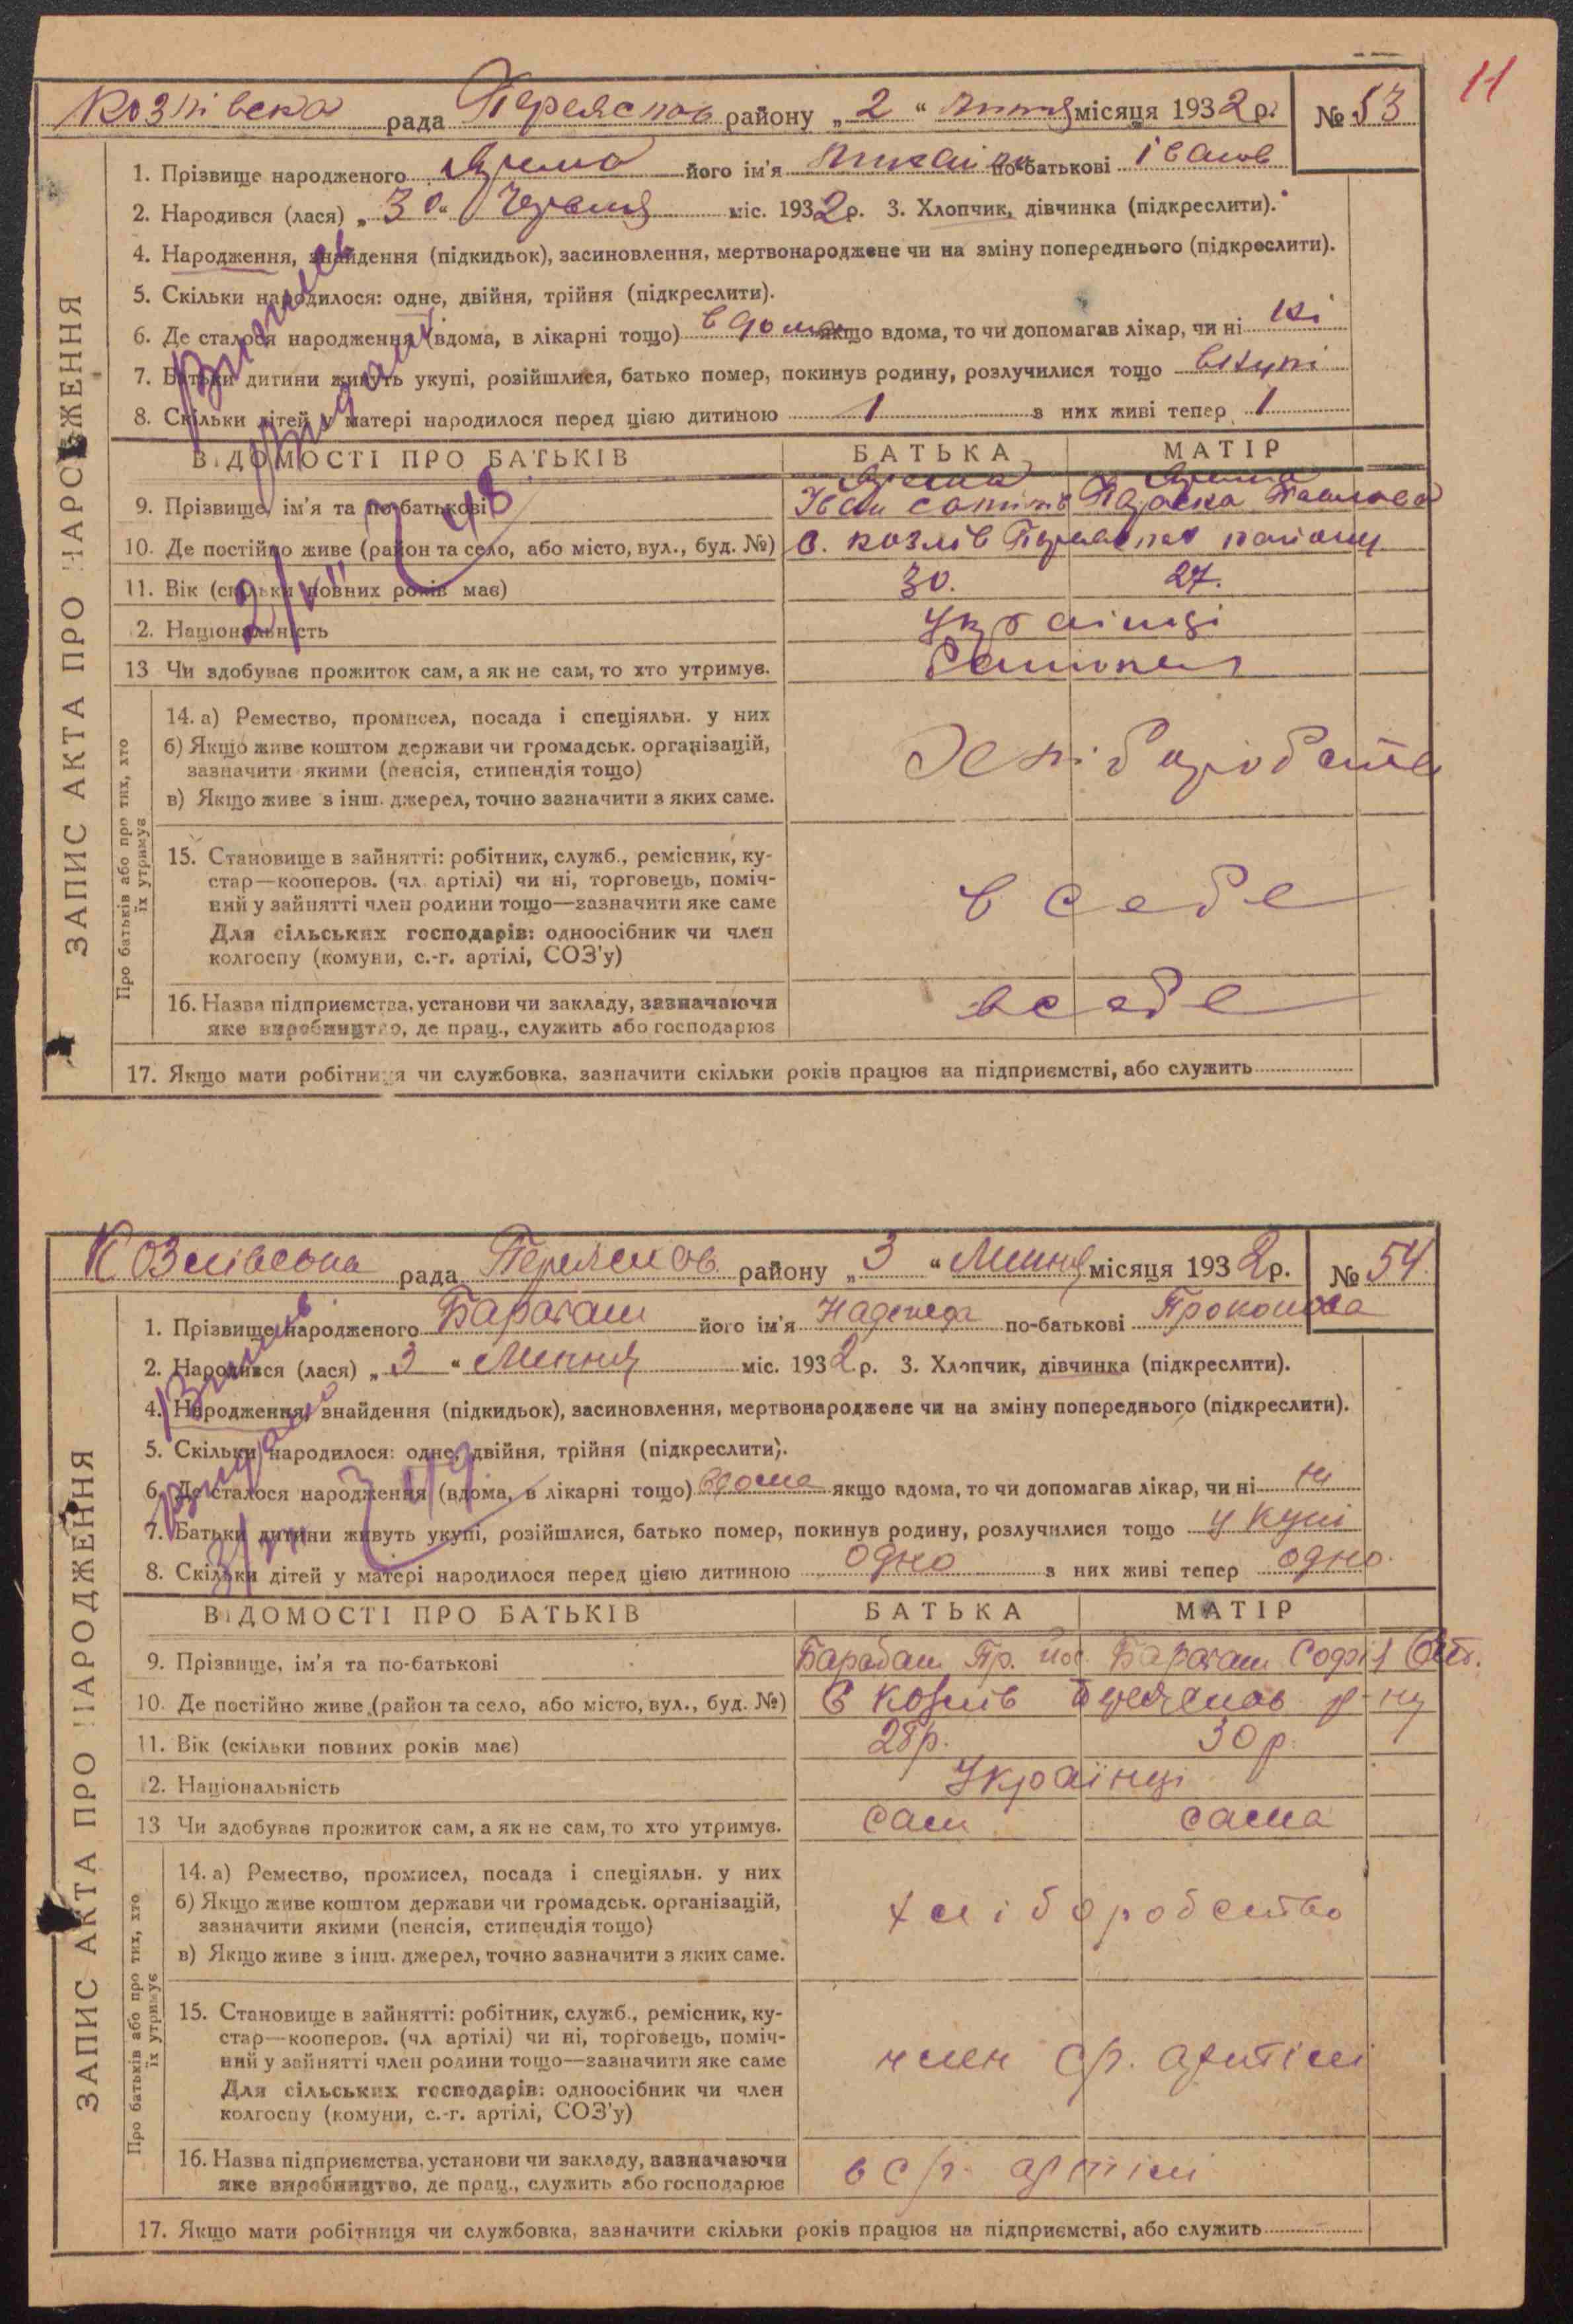 11
Козлівска рада Переяслав району „2“ липня місяця 1932 р. № 53
ЗАПИС АКТА ПРО НАРОДЖЕННЯ
1. Прізвище народженого його ім'я Михайло по-батькові Іванов
2. Народився (лася) „30“ Червня міс. 1932 р. 3. Хлопчик, дівчинка (підкреслити).
4. Народження, знайдення (підкидьок), засиновлення, мертвонароджене чи на зміну попереднього (підкреслити).
5. Скільки народилося: одне, двійня, трійня (підкреслити).
6. Де сталося народження (вдома, в лікарні тощо) в дома якщо вдома, то чи допомагав лікар, чи ні ні
7. Батьки дитини живуть укупі, розійшлися, батько помер, покинув родину, розлучилися тощо вкупі
8. Скільки дітей у матері народилося перед цією дитиною 1 з них живі тепер 1
ВІДОМОСТІ ПРО БАТЬКІВ БАТЬКА МАТІР
9. Прізвище, ім'я та по-батькові Іван Параска Павлова
10. Де постійно живе (район та село, або місто, вул., буд. №) с. Козлів Переяслав району
11. Вік (скільки повних років має) 30. 27.
12. Національність Українці
13 Чи здобуває прожиток сам, а як не сам, то хто утримує.
Про батьків або про тих, хто їх утримує
14. а) Ремество, промисел, посада і спеціяльн. у них
б) Якщо живе коштом держави чи громадськ. організацій,
зазначити якими (пенсія, стипендія тощо)
в) Якщо живе з інш. джерел, точно зазначити з яких саме.
Хліборобство
15. Становище в зайнятті: робітник, служб., ремісник, ку-
стар—кооперов. (чл. артілі) чи ні, торговець, поміч-
ний у зайнятті член родини тощо—зазначити яке саме
Для сільських господарів: одноосібник чи член
колгоспу (комуни, с.-г. артілі, СОЗ'у)
в себе
16. Назва підприємства, установи чи закладу, зазначаючи
яке виробництво, де прац., служить або господарює
в себе
17. Якщо мати робітниця чи службовка, зазначити скільки років працює на підприємстві, або служить
Козлівська рада Переяслав. району „3“ Липня місяця 1932 р. № 54.
ЗАПИС АКТА ПРО НАРОДЖЕННЯ
1. Прізвище народженого Барабаш його ім'я Надежда по-батькові Прокопова
2. Народився (лася) „3“ Липня міс. 1932 р. 3. Хлопчик, дівчинка (підкреслити).
4. Народження, знайдення (підкидьок), засиновлення, мертвонароджене чи на зміну попереднього (підкреслити).
5. Скільки народилося: одне, двійня, трійня (підкреслити).
6. Де сталося народження (вдома, в лікарні тощо) вдома якщо вдома, то чи допомагав лікар, чи ні ні
7. Батьки дитини живуть укупі, розійшлися, батько помер, покинув родину, розлучилися тощо у купі
8. Скільки дітей у матері народилося перед цією дитиною одно з них живі тепер одно.
ВІДОМОСТІ ПРО БАТЬКІВ БАТЬКА МАТІР
9. Прізвище, ім'я та по-батькові Барабаш Пр. Йос. Барабаш Софія
10. Де постійно живе (район та село, або місто, вул., буд. №) С Козлів Переяслав р-ну
11. Вік (скільки повних років має) 28р. 30 р.
12. Національність Українці
13 Чи здобуває прожиток сам, а як не сам, то хто утримує. сам сама
Про батьків або про тих, хто їх утримує
14. а) Ремество, промисел, посада і спеціяльн. у них
б) Якщо живе коштом держави чи громадськ. організацій,
зазначити якими (пенсія, стипендія тощо)
в) Якщо живе з інш. джерел, точно зазначити з яких саме.
хліборобство
15. Становище в зайнятті: робітник, служб., ремісник, ку-
стар—кооперов. (чл. артілі) чи ні, торговець, поміч-
ний у зайнятті член родини тощо—зазначити яке саме
Для сільських господарів: одноосібник чи член
колгоспу (комуни, с.-г. артілі, СОЗ'у)
член с/г. артілі
16. Назва підприємства, установи чи закладу, зазначаючи
яке виробництво, де прац., служить або господарює
в с/г. артілі
17. Якщо мати робітниця чи службовка, зазначити скільки років працює на підприємстві, або служить